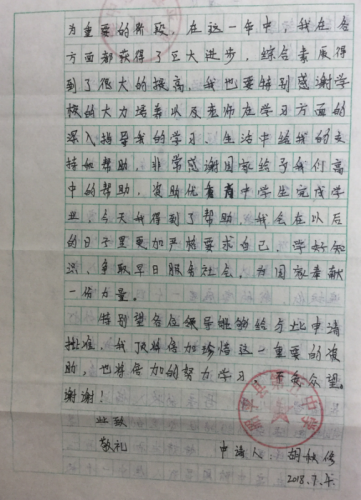 为重要的阶段，在这一年中，我在各
方面都获得了巨大进步，综合素质得
到了很大的提高，我也要特别感谢学
校的大力培养以及老师在学习方面的
深入指导我的学习、生活中给我的支
持和帮助，非常感谢国家给予我们高
中的帮助，资助优育高中学生完成学
业，今天我得到了帮助，我会在以后
的日子里更加严格要求自己，学好知
识，争取早日服务社会，为国家奉献
一份力量。
特别望各位领导能够给与此申请
批准，我顶将倍加珍惜这一重要的资
助，也将倍加的努力学习，不负众望
谢谢！
此致
敬礼
申请人：胡
2018.9.
中学